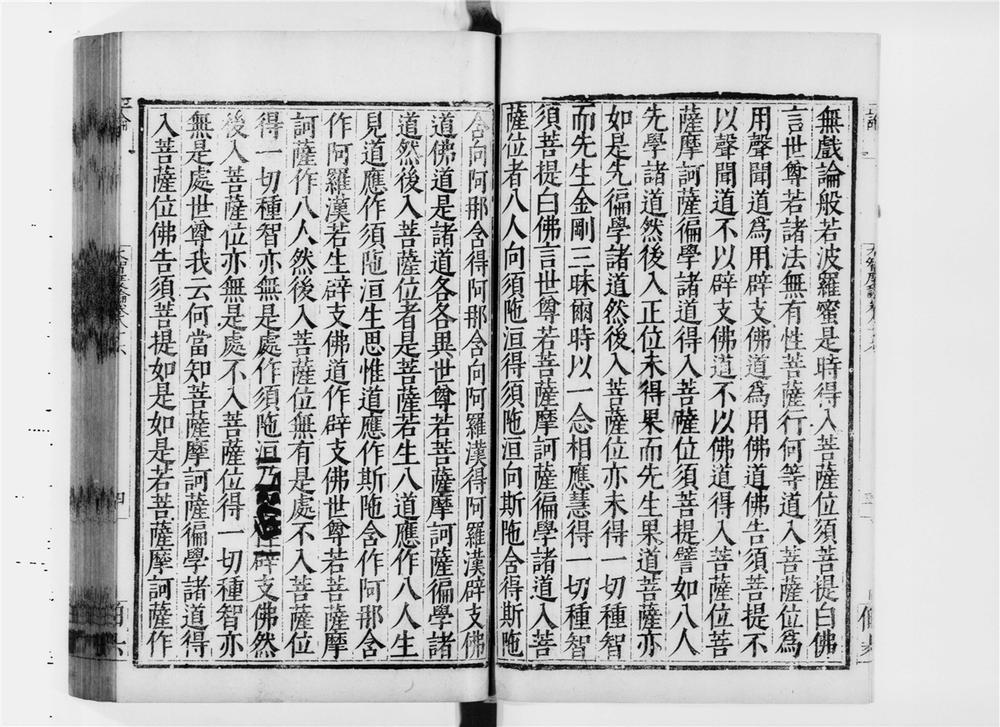 無戲論般若波羅蜜是時得入菩薩位須菩提白佛
言世尊若諸法無有性菩薩行何等道入菩薩位爲
用聲聞道爲用辟支佛道爲用佛道佛告須菩提不
以聲聞道不以辟支佛道不以佛道得入菩薩位菩
薩摩訶薩徧學諸道得入菩薩位須菩提譬如八人
先學諸道然後入正位未得果而先生果道菩薩亦
如是先徧學諸道然後入菩薩位亦未得一切種智
而先生金剛三昧爾時以一念相應慧得一切種智
須菩提白佛言世尊若菩薩摩訶薩徧學諸道入菩
薩位者八人向須陁洹得須陁洹向斯陁含得斯陁
含向阿那含得阿那含向阿羅漢得阿羅漢辟支佛
道佛道是諸道各各異世尊若菩薩摩訶薩徧學諸
道然後入菩薩位者是菩薩若生八道應作八人生
見道應作須陁洹生思惟道應作斯陁含作阿那含
作阿羅漢若生辟支佛道作辟支佛世尊若菩薩摩
訶薩作八人然後入菩薩位無有是處不入菩薩位
得一切種智亦無是處作須陁洹乃至作辟支佛然
後入菩薩位亦無是處不入菩薩位得一切種智亦
無是處世尊我云何當知菩薩摩訶薩徧學諸道得
入菩薩位佛告須菩提如是如是若菩薩摩訶薩作